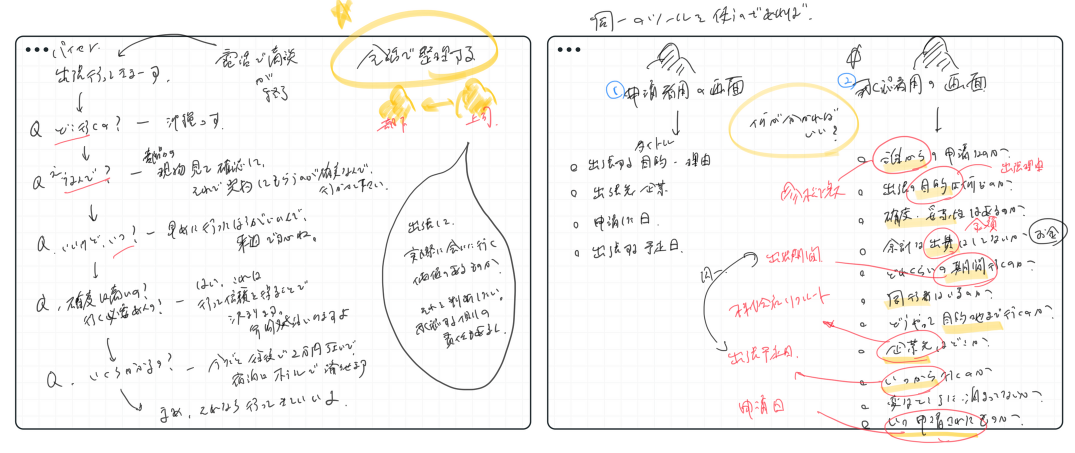 同一のツールを使うのであれば
バイヤー
出張行ってきまーす。
電話で商談
が
終了
会話で整理する
部下
上司
Q どこ行くの? ー 沖縄っす。
Q なんで? ー 現物見て確認して、
それで契約してもらうのが確度なんで
行かせてください
Q. いいけど、いつ? ー 早めに行ったほうがいいんで、
来週ですかね。
Q. 確度は高いの?
行く必要あんの?
ー はい、これは
行って信頼を得ることで
決まります。
Q. いくらかかるの? ー 今だと往復で2万円以下で
宿泊はホテルで済ませます
まぁ、それなら行ってきていいよ
出張して、
実際に会いに行く
価値はあるのか?
それを判断したい。
承認する側の
責任もあるし。
① 申請者用の画面
タイトル
出張する目的・理由
出張先企業
申請した日
出張する予定日
何が分かれば
いい?
② 承認者用の画面
誰からの申請なのか?
出張の目的は何なのか?
出張理由
確度・妥当性はあるのか?
余計な出費はしてないか?
金額
お金
どれくらいの期間行くのか?
同行者はいるのか?
どうやって目的地まで行くのか?
企業先はどこか?
いつから行くのか?
変なところに泊まってないか?
いつ申請されたものか?
出張期間
出張予定日
申請日